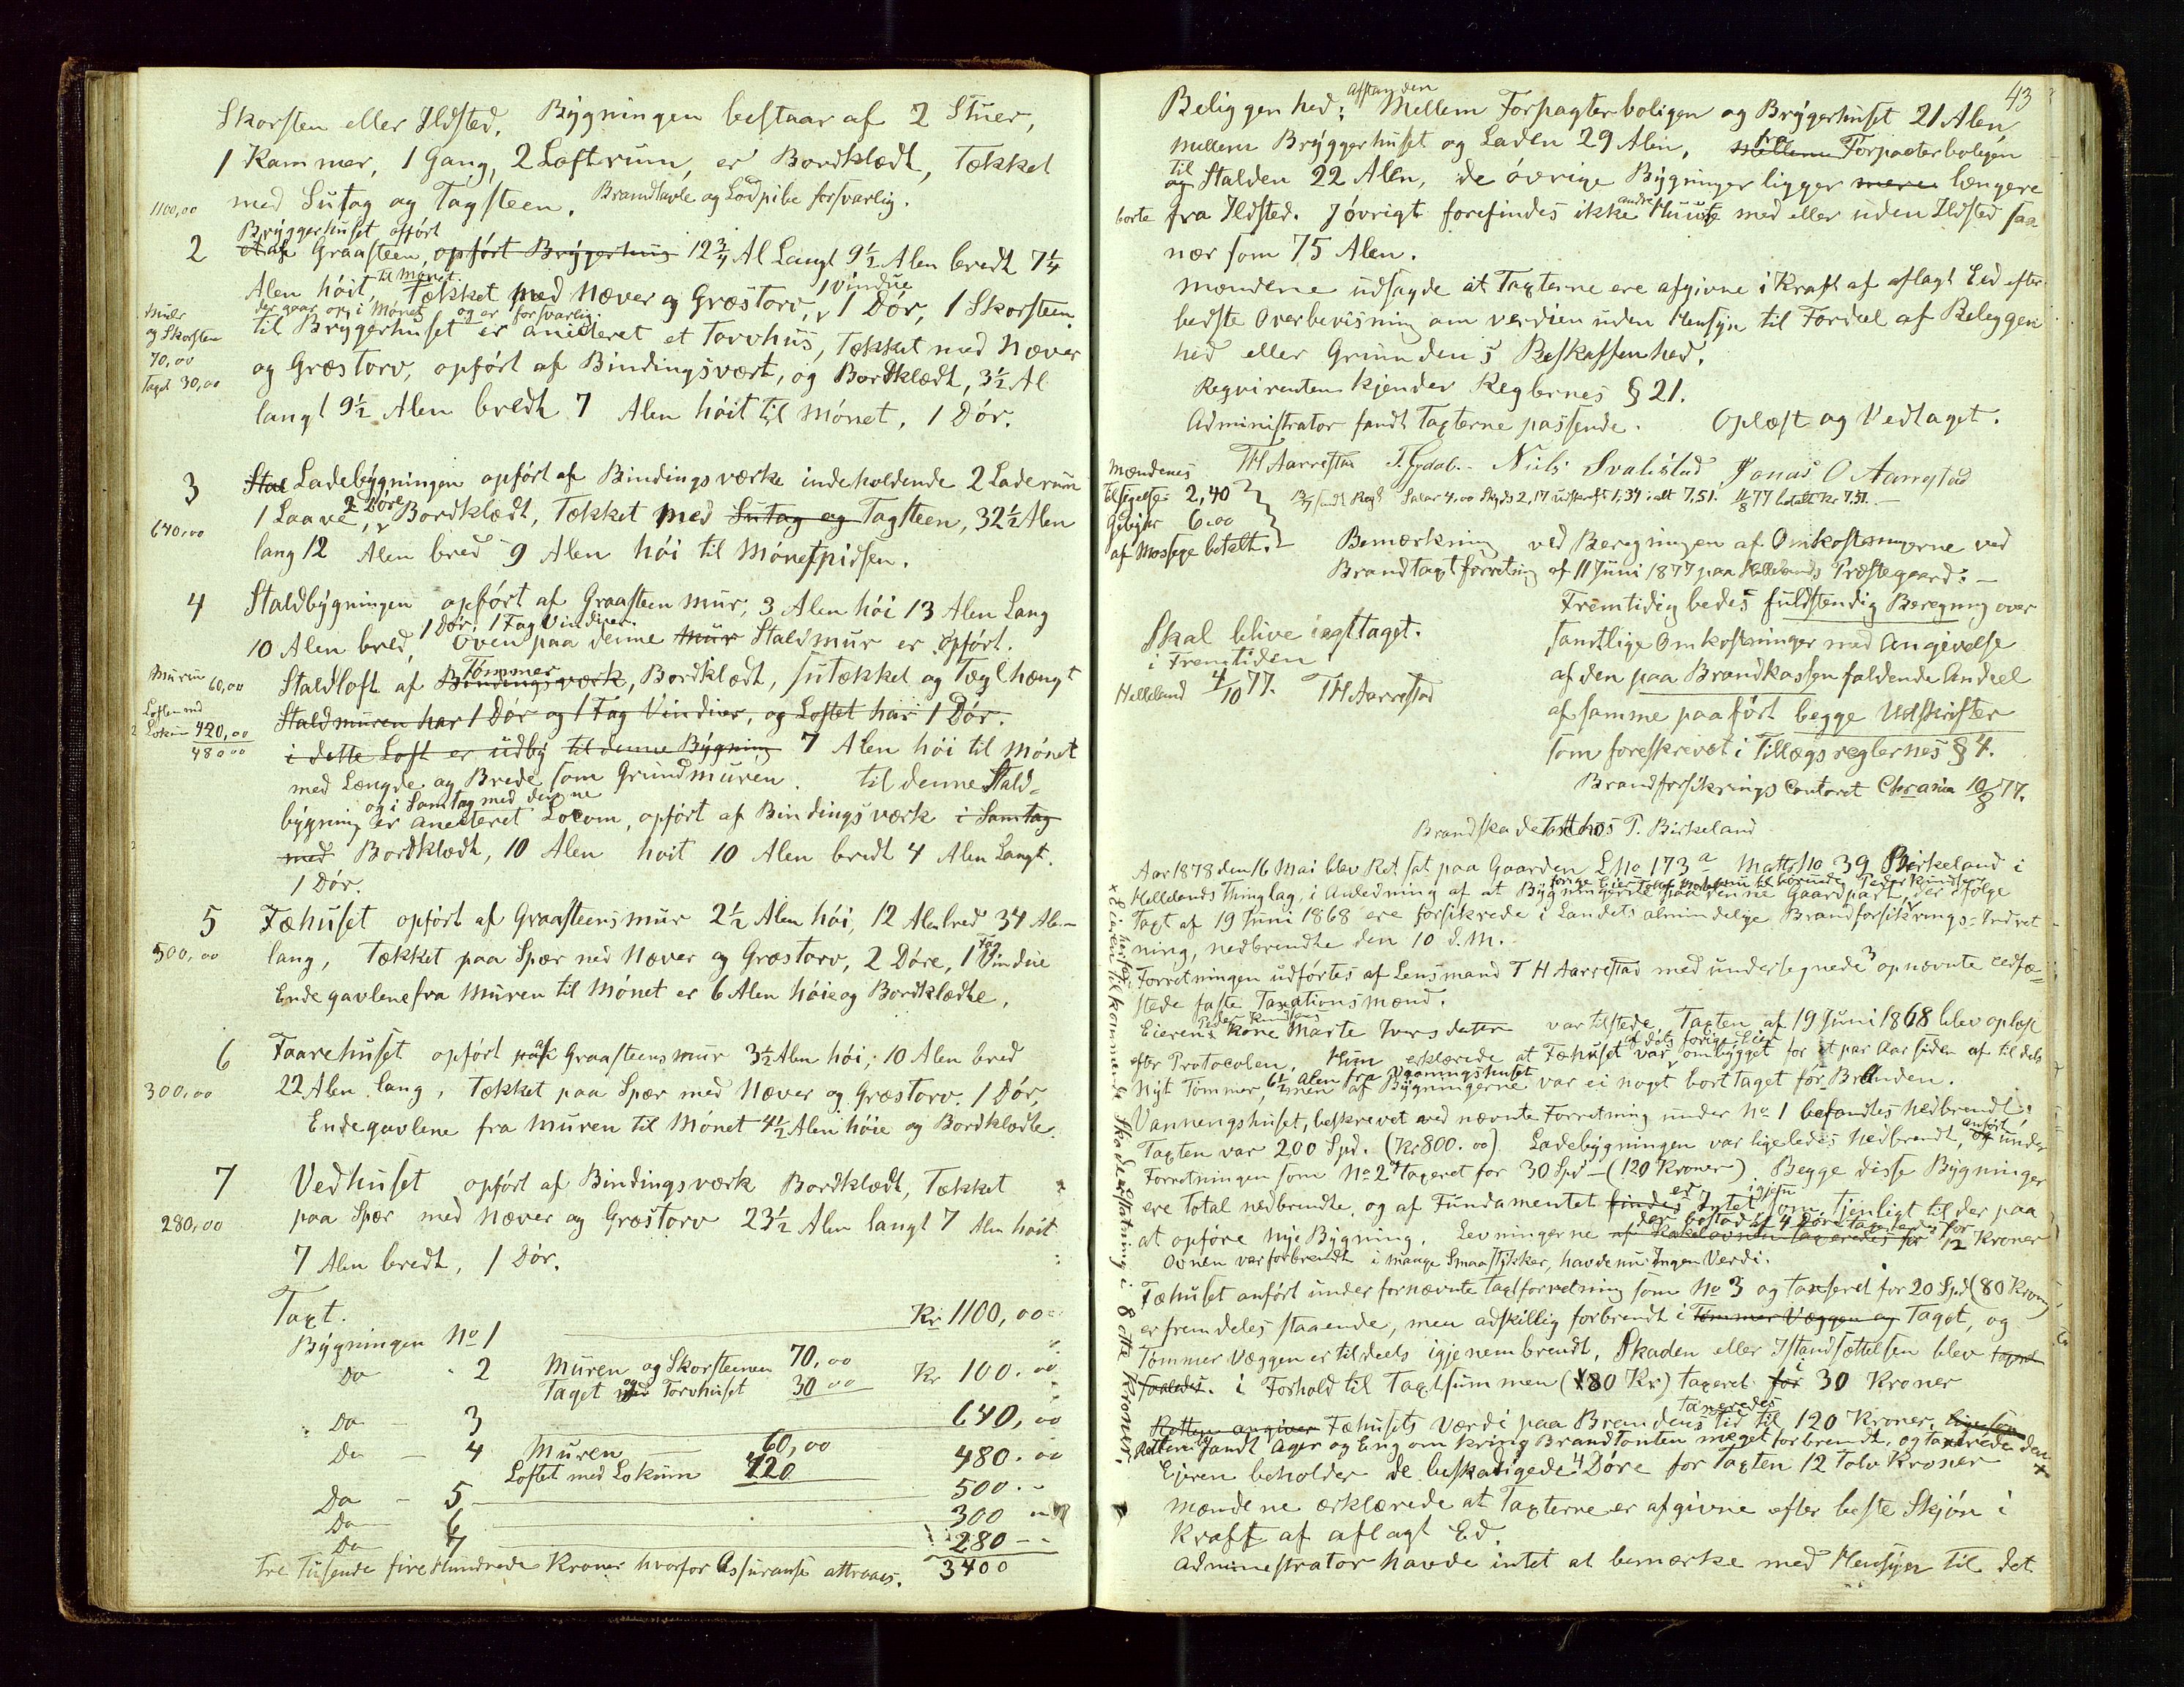 Skorsten eller Ildsted. Bygningen bestaar af 2 Stuer,
1 Kammer, 1 Gang, 2 Loftrum, er Bordklædt, Tækket
1100,00 med Sutag og Tagsteen. Brandtavle og Lodpibe forsvarlig.
Bryggerhuset opført
2 et af Graasteen, opført Brygerhus 12 3/4 Al Langt 9 1/2 Alen bredt 7 1/4
Alen høit, til Mønet. Tækket med Næver og Græstorv, 1 Vindue 1 Dør, 1 Skorsteen.
der gaar op i Mønet og er forsvarlig.
Muur og Skorsten 70,00 Taget 30,00
til Brygerhuset er anecteret et Torvhus, Tækket med Næver
og Græstorv, opført af Bindingsværk, og Bordklædt, 3 1/2 Al
langt 9 1/2 Alen bredt 7 Alen høit til Mønet, 1 Dør.
3 Stal Ladebygningen opført af Bindingsværke indeholdende 2 Laderum
640,00 1 Laave, 2 Døre Bordklædt, Tækket med Sutag og Tagsteen, 32 1/2 Alen
lang 12 Alen bred 9 Alen høi til Mønespidsen.
4 Staldbygningen opført af Graasteen mur, 3 Alen høi 13 Alen Lang
10 Alen bred, 1 Dør, 1 Fag Vinduer. Oven paa denne Mur Staldmur er opført.
Muren 60,00 Staldloft af Bindingsværk, Tømmer Bordklædt, sutækket og Tæglhængt
Loften med Lokum 420,00 Staldmuren har 1 Dør og 1 Fag Vinduer, og Loftet har 1 Dør.
480 00 i dette Loft er udby til denne Bygning 7 Alen høi til Mønet
med Længde og Brede som Grundmuren. til denne Stald-
og i Samtag med denne
bygning er anecteret Locom, opført af Bindingsværk i Samtag
med Bordklædt, 10 Alen høit 10 Alen bredt 4 Alen Langt.
1 Dør.
5 Fæhuset opført af Graasteensmur 2 1/2 Alen høi, 12 Alen bred 34 Alen
500,00 lang, Tækket paa Spær med Næver og Græstorv, 2 Døre, 1 Fag Vindue
Endegavlene fra Muren til Mønet er 6 Alen høie og Bordklædte.
6 Faarehuset opført paa af Graasteensmur 3 1/2 Alen høi, 10 Alen bred
300,00 22 Alen lang, Tækket paa Spær med Næver og Græstorv. 1 Dør,
Endegavlene fra Muren til Mønet 4 1/2 Alen høie og Bordklædte.
7 Vedhuset opført af Bindingsværk Bordklædt, Tækket
280,00 paa Spær med Næver og Græstorv 23 1/2 Alen langt 7 Alen høit
7 Alen bredt, 1 Dør.
Taxt.
Bygningen No 1 Kr 1100,00
Do " 2 Muren og Skorsteinen 70,00
Taget med og Torvhuset 30 00 Kr 100.00
Do - 3 640,00
Do - 4 Muren 60,00
Loftet med Lokum 420 480.00
Do - 5 500.-
Do 6 300
Do 7 280 --
Tre Tusende firehundrede Kroner hvorfor Assuranse attraaes. 3400
43
Beliggenhed: Afstanden Mellem Forpagterboligen og Brygerhuset 21 Alen
mellem Bryggerhuset og Laden 29 Alen, Mellem fra Forpacterboligen
og til Stalden 22 Alen, de øvrige Bygninger ligger mere længere
borte fra Ildsted. Iøvrigt forefindes ikke andre Huuse med eller uden Ildsted saa
nær som 75 Alen.
Mændene udsagde at Taxterne ere afgivne i Kraft af aflagt Eed efter
bedste Overbevisning om verdien uden Hensyn til Fordeel af Beliggen
hed eller Grundens Beskaffenhed.
Reqvirenten kjender Reglernes § 21.
Administrator fandt Taxterne passende. Oplæst og Vedtaget.
TH Aarrestad T. Gydal. Niels Svalestad Jonas O Aarrestad
Mændenes tilsigelse: 2,40
Gebyhr 6.00
af Mossige betalt.
Salær 4,00 Skyds 2,17 udskrift 1,34 i alt 7,51. 11/8 77 betalt Kr 7.51.
Bemærkning ved Beregningen af Omkostningerne ved
Brandtaxtforretning af 11 Juni 1877 paa Hellelands Præstegaard: -
Fremtidig bedes fuldstendig Beregning over
samtlige Omkostninger med Angivelse
af den paa Brandkassen faldende Andeel
af samme paaført begge Udskrifter
som foreskrevet i Tillægsreglernes § 4.
Brandforsikrings Contoret Chrania 10/8 77.
Skal blive iagttaget.
i Fremtiden
Helleland 4/10 77. TH Aarrestad
Brandskadetaxt hos P. Birkeland
Aar 1878 den 16 Mai blev Ret sat paa Gaarden LNo 173 a Matr No 39 Birkeland i
Hellelands Thinglag, i Anledning af at Bygningerne paa denne Gaardpart, der ifølge
Taxt af 19 Juni 1868 ere forsikrede i Landets almindelige Brandforsikrings-Indret
ning, nedbrendte den 10 d.M.
Forretningen udførtes af Lensmand T H Aarrestad med undertegnede 3 opnævnte eedfæ=
stede faste Taxationsmænd.
Eierens Peder Knudsens Kone Marte Iversdatter var tilstede. Taxten af 19 Juni 1868 blev oplæst
efter Protocolen. Hun erklærede at Fæhuset var af dets forige Eier ombygget for et par Aar siden af til dels
Nyt Tømmer, 6 1/2 Alen fra Vaaningshuset men af Bygningerne var ei noget borttaget før Branden.
Vaanengshuset, beskrevet ved nævnte Forretning under No 1 befandtes nedbrendt.
Taxten var 200 Spd. (Kr 800.00) Ladebygningen var ligeledes Nedbrendt, anført under
Forretningen som No 2 taxeret for 30 Spd - (120 Kroner). Begge disse Bygninger
ere Total nedbrendte, og af Fundamentet findes er Intet igjen som tjenligt til der paa
at opføre nye Bygning. Levningerne af Kakelovnen taxeredes for der bestod af 4 Døre taxeredes for 12 Kroner
Ovnen var forbrendt i mange Smaastykker, havde nu Ingen Verdi.
Fæhuset anført under fornævnte Taxtforretning som No 3 og taxseret for 20 Spd (80 Kroner)
er fremdeles staaende, men adskillig forbrendt i Tømmer Væggen og Taget, og
Tømmer Væggen er tildeels igjenembrendt, Skaden eller Istandsættelsen blev taxert
saaledes. i Forhold til Taxtsummen (80 Kr) taxeret for i 30 Kroner
Retten angiver Fæhusets Værdi paa Brandens tid taxeredes til 120 Kroner. ligesom
Retten fandt Ager og Eng omkring Brandtomten meget forbrendt, og taxerede den
Eieren beholder de beskadigede 4 Døre for Taxten 12 Tolv Kroner
Mændene erklærede at Taxterne er afgivne efter beste Skjøn i
Kraft af aflagt Ed.
Administrator havde intet at bemærke med Hensyn til det
x Eieren herfor tilkommende Skadeerstatning i 8 otte Kroner.